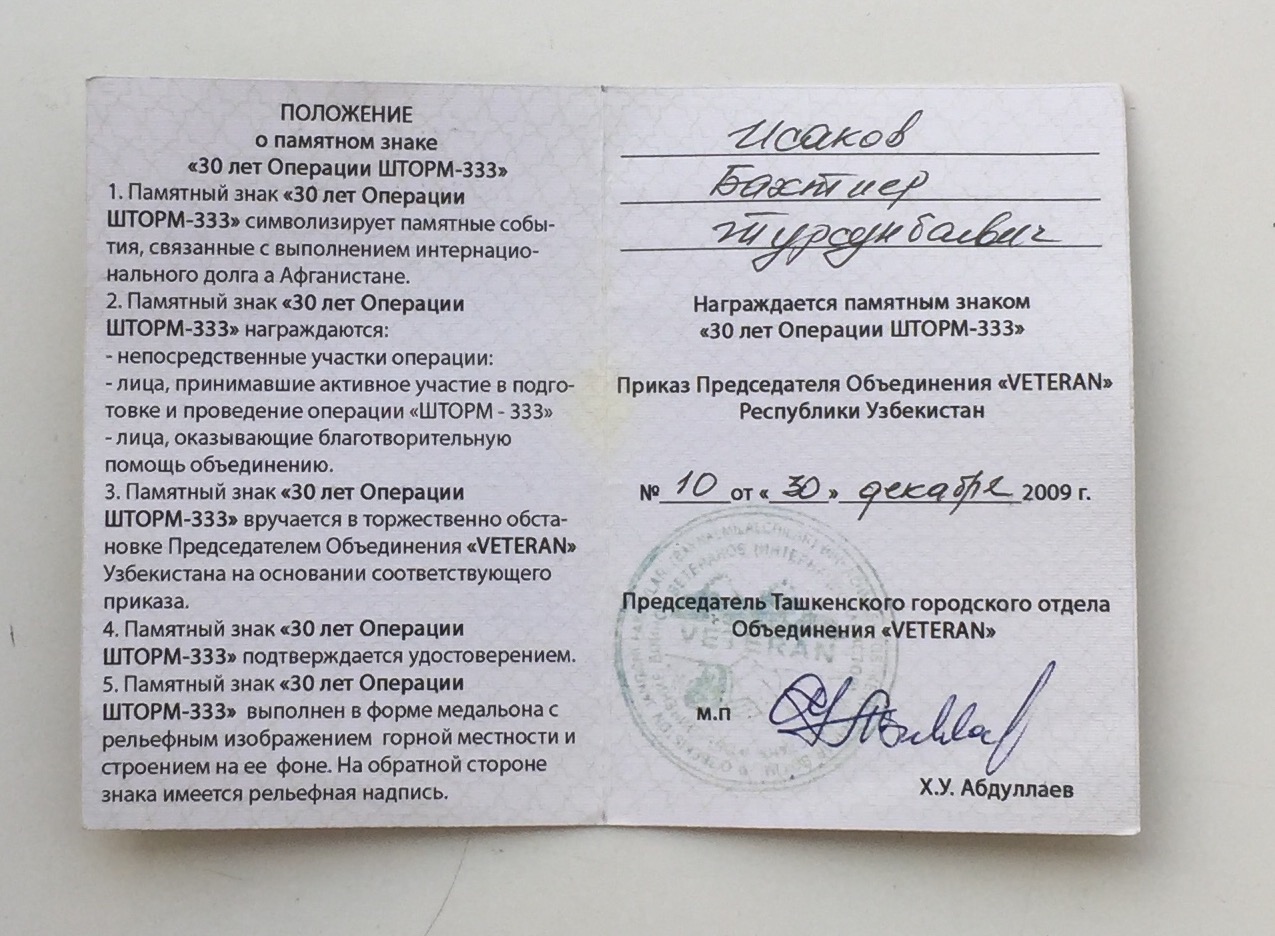 ПОЛОЖЕНИЕ
о памятном знаке
«30 лет Операции ШТОРМ-333»
1. Памятный знак «30 лет Операции
ШТОРМ-333» символизирует памятные собы-
тия, связанные с выполнением интернацио-
нального долга а Афганистане.
2. Памятный знак «30 лет Операции
ШТОРМ-333» награждаются:
- непосредственные участки операции:
- лица, принимавшие активное участие в подго-
товке и проведение операции «ШТОРМ - 333»
- лица, оказывающие благотворительную
помощь объединению.
3. Памятный знак «30 лет Операции
ШТОРМ-333» вручается в торжественно обста-
новке Председателем Объединения «VETERAN»
Узбекистана на основании соответствующего
приказа.
4. Памятный знак «30 лет Операции
ШТОРМ-333» подтверждается удостоверением.
5. Памятный знак «30 лет Операции
ШТОРМ-333» выполнен в форме медальона с
рельефным изображением горной местности и
строением на ее фоне. На обратной стороне
знака имеется рельефная надпись.
Исаков
Бахтиер
Турсунбаевич
Награждается памятным знаком
«30 лет Операции ШТОРМ-333»
Приказ Председателя Объединения «VETERAN»
Республики Узбекистан
№ 10 от « 30 » декабре 2009 г.
Председатель Ташкенского городского отдела
Объединения «VETERAN»
VETERAN
м.п
Х.У. Абдуллаев